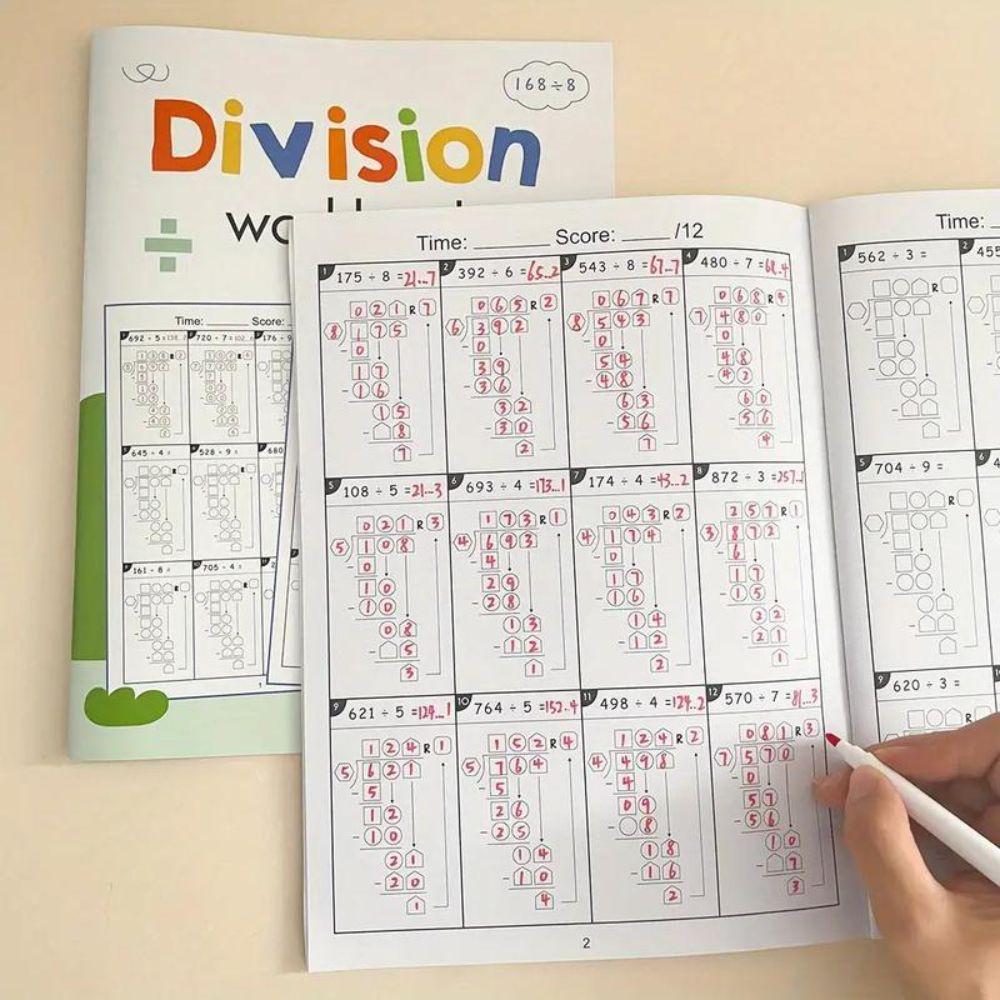 168÷8
Division
Time: ______ Score: ____ /12
1 175 ÷ 8 = 21...7
2 392 ÷ 6 = 65...2
3 543 ÷ 8 = 67...7
4 480 ÷ 7 = 68..4
0 2 1 R 7
0 6 5 R 2
0 6 7 R 7
0 6 8 R 4
8 1 7 5
6 3 9 2
8 5 4 3
7 4 8 0
- 0
- 0
- 0
- 0
1 7
3 9
5 4
4 8
- 1 6
- 3 6
- 4 8
- 4 2
1 5
3 2
6 3
6 0
- 8
- 3 0
- 5 6
- 5 6
7
2
7
4
5 108 ÷ 5 = 21...3
6 693 ÷ 4 = 173...1
7 174 ÷ 4 = 43...2
8 872 ÷ 3 = 257..1
0 2 1 R 3
1 7 3 R 1
0 4 3 R 2
2 5 7 R 1
5 1 0 8
4 6 9 3
4 1 7 4
3 8 7 2
- 0
- 4
- 0
- 6
1 0
2 9
1 7
1 7
- 1 0
- 2 8
- 1 6
- 1 5
0 8
1 3
1 4
2 2
- 5
- 1 2
- 1 2
- 2 1
3
1
2
1
9 621 ÷ 5 = 124...1
10 764 ÷ 5 = 152..4
11 498 ÷ 4 = 124..2
12 570 ÷ 7 = 81...3
1 2 4 R 1
1 5 2 R 4
1 2 4 R 2
0 8 1 R 3
5 6 2 1
5 7 6 4
4 4 9 8
7 5 7 0
- 5
- 5
- 4
- 0
1 2
2 6
0 9
5 7
- 1 0
- 2 5
- 8
- 5 6
2 1
1 4
1 8
1 0
- 2 0
- 1 0
- 1 6
- 7
1
4
2
3
2
Time:
1 562 ÷ 3 =
2 455
R
5 704 ÷ 9 =
6
R
9 620 ÷ 3 =
R
Time: ______ Score:
692 ÷ 5
720 ÷ 7
176 ÷ 9
645 ÷ 4 =
528 ÷ 9 =
680
161 ÷ 8 =
705 ÷ 4 =
1